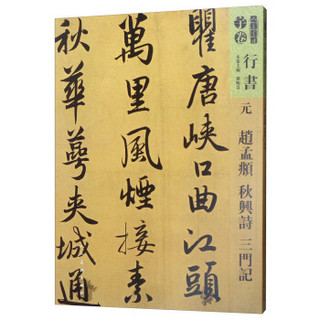 千卷
行書
元
趙孟頫 秋興詩 三門記
瞿唐峽口曲江頭
萬里風煙接素
秋華萼夾城通